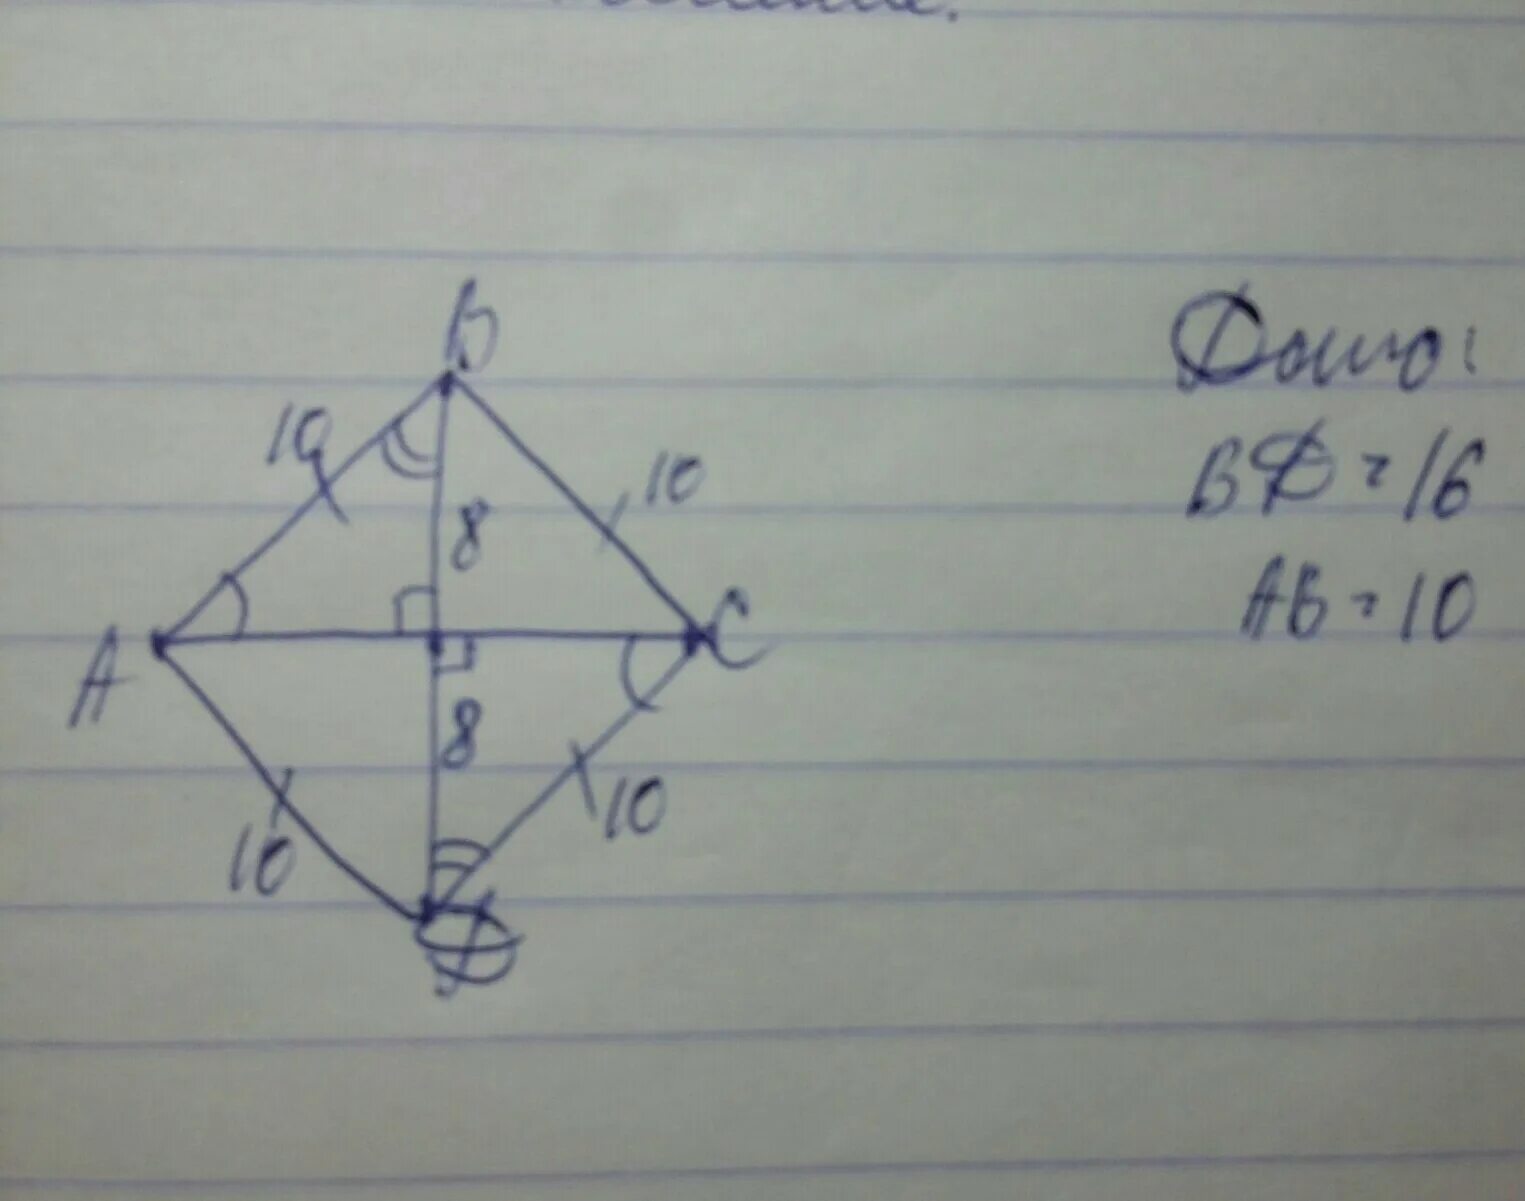 B
10
10
8
A
C
8
10
10
D
Дано:
BD = 16
AB = 10